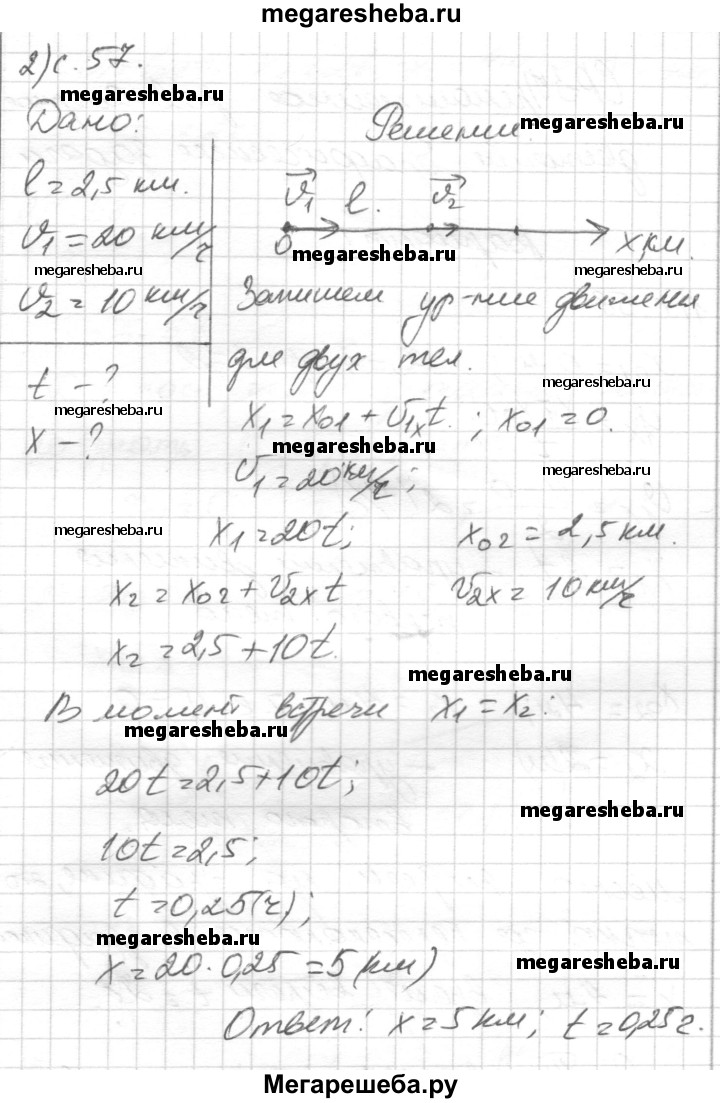 megaresheba.ru
2) с. 57.
megaresheba.ru
Дано: Решение. megaresheba.ru
l = 2,5 км. v⃗1 l. v⃗2
v1 = 20 км/ч 0 x, км.
megaresheba.ru megaresheba.ru megaresheba.ru
v2 = 10 км/ч Запишем ур-ние движения
для двух тел.
t - ? megaresheba.ru
megaresheba.ru x1 = x01 + v1x t. ; x01 = 0.
x - ? megaresheba.ru
v1 = 20 км/ч; megaresheba.ru
megaresheba.ru x1 = 20t; x02 = 2,5 км.
x2 = x02 + v2x t v2x = 10 км/ч
x2 = 2,5 + 10t.
megaresheba.ru
В момент встречи x1 = x2:
megaresheba.ru
20t = 2,5 + 10t;
megaresheba.ru
10t = 2,5;
t = 0,25 (ч);
megaresheba.ru
x = 20 · 0,25 = 5 (км) megaresheba.ru
Ответ: x = 5 км; t = 0,25 ч.
Мегарешеба.ру